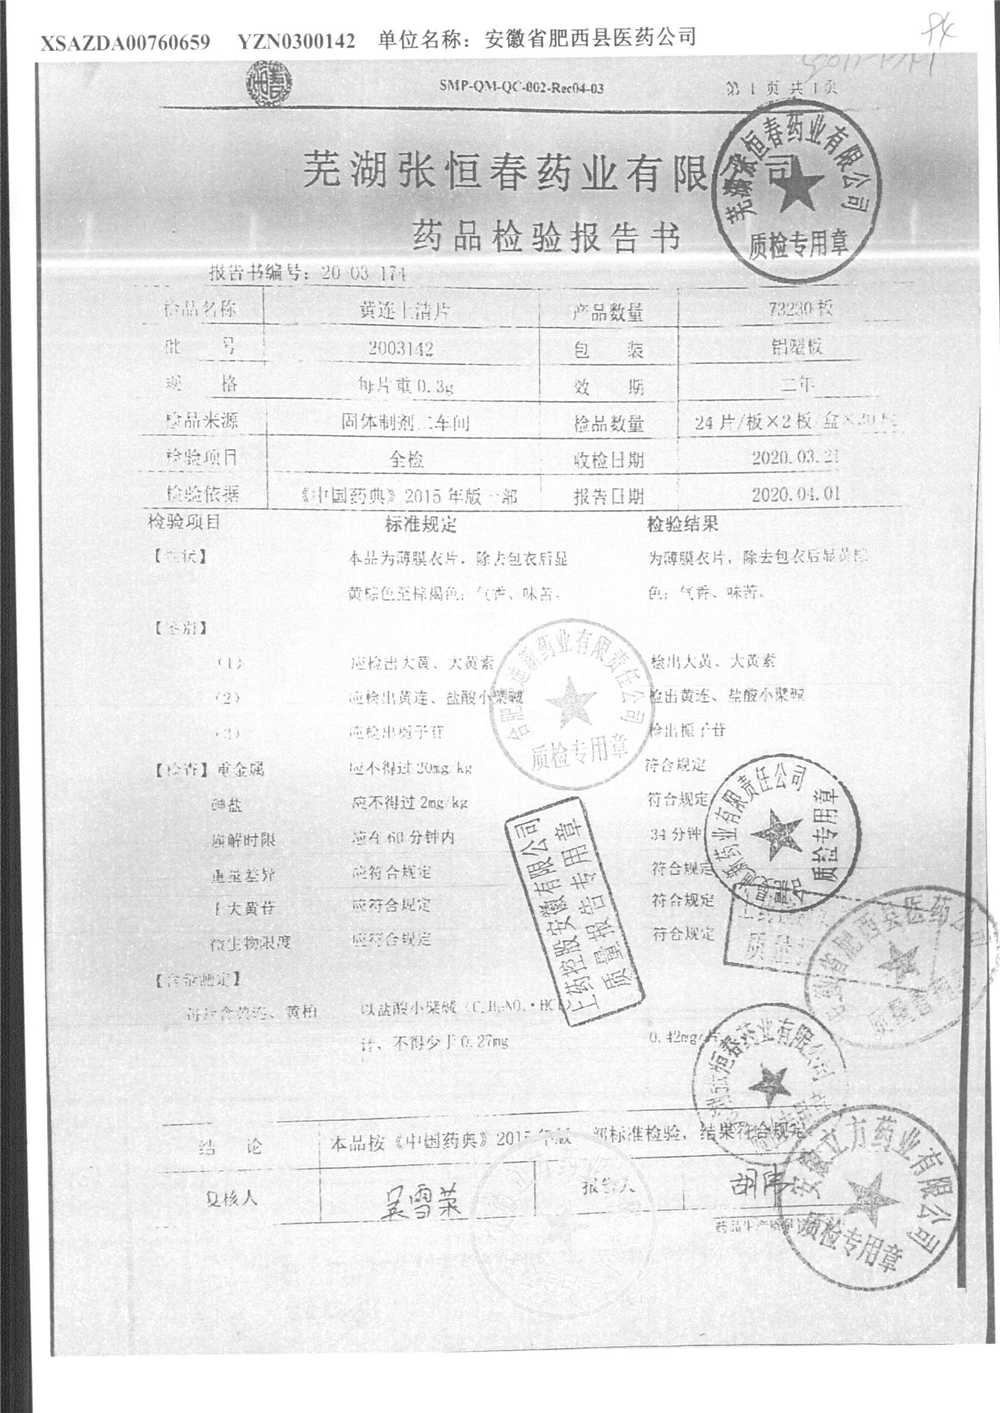 XSAZDA00760659 YZN0300142 单位名称：安徽省肥西县医药公司
SMP-QM-QC-002-Rec04-03 第 1 页 共 1 页
芜湖张恒春药业有限公司
药品检验报告书
报告书编号：20-03-174
检品名称 黄连上清片 产品数量 73230板
批 号 2003142 包 装 铝塑板
规 格 每片重0.3g 效 期 二年
检品来源 固体制剂二车间 检品数量 24片/板×2板/盒×
检验项目 全检 收检日期 2020.03.21
检验依据 《中国药典》2015年版一部 报告日期 2020.04.01
检验项目 标准规定 检验结果
【性状】 本品为薄膜衣片，除去包衣后显 为薄膜衣片，除去包衣后显黄棕
黄棕色至棕褐色；气香、味苦。 色；气香、味苦。
【鉴别】
（1） 应检出大黄、大黄素 检出大黄、大黄素
（2） 应检出黄连、盐酸小檗碱 检出黄连、盐酸小檗碱
（3） 应检出栀子苷 检出栀子苷
【检查】重金属 应不得过20mg/kg 符合规定
砷盐 应不得过2mg/kg 符合规定
崩解时限 应在60分钟内 34分钟
重量差异 应符合规定 符合规定
土大黄苷 应符合规定 符合规定
微生物限度 应符合规定 符合规定
【含量测定】
每片含黄连、黄柏 以盐酸小檗碱
计，不得少于0.27mg 0.42mg/片
结 论 本品按《中国药典》2015年版一部标准检验，结果符合规定
复核人 吴雪荣 报告人 胡
芜湖张恒春药业有限公司
质检专用章
药业有限责任公司
质检专用章
上药控股安徽有限公司
质量报告专用章
药业有限责任公司
质检专用章
安徽省肥西县医药公司
张恒春药业有限公司
安徽立方药业有限公司
质检专用章